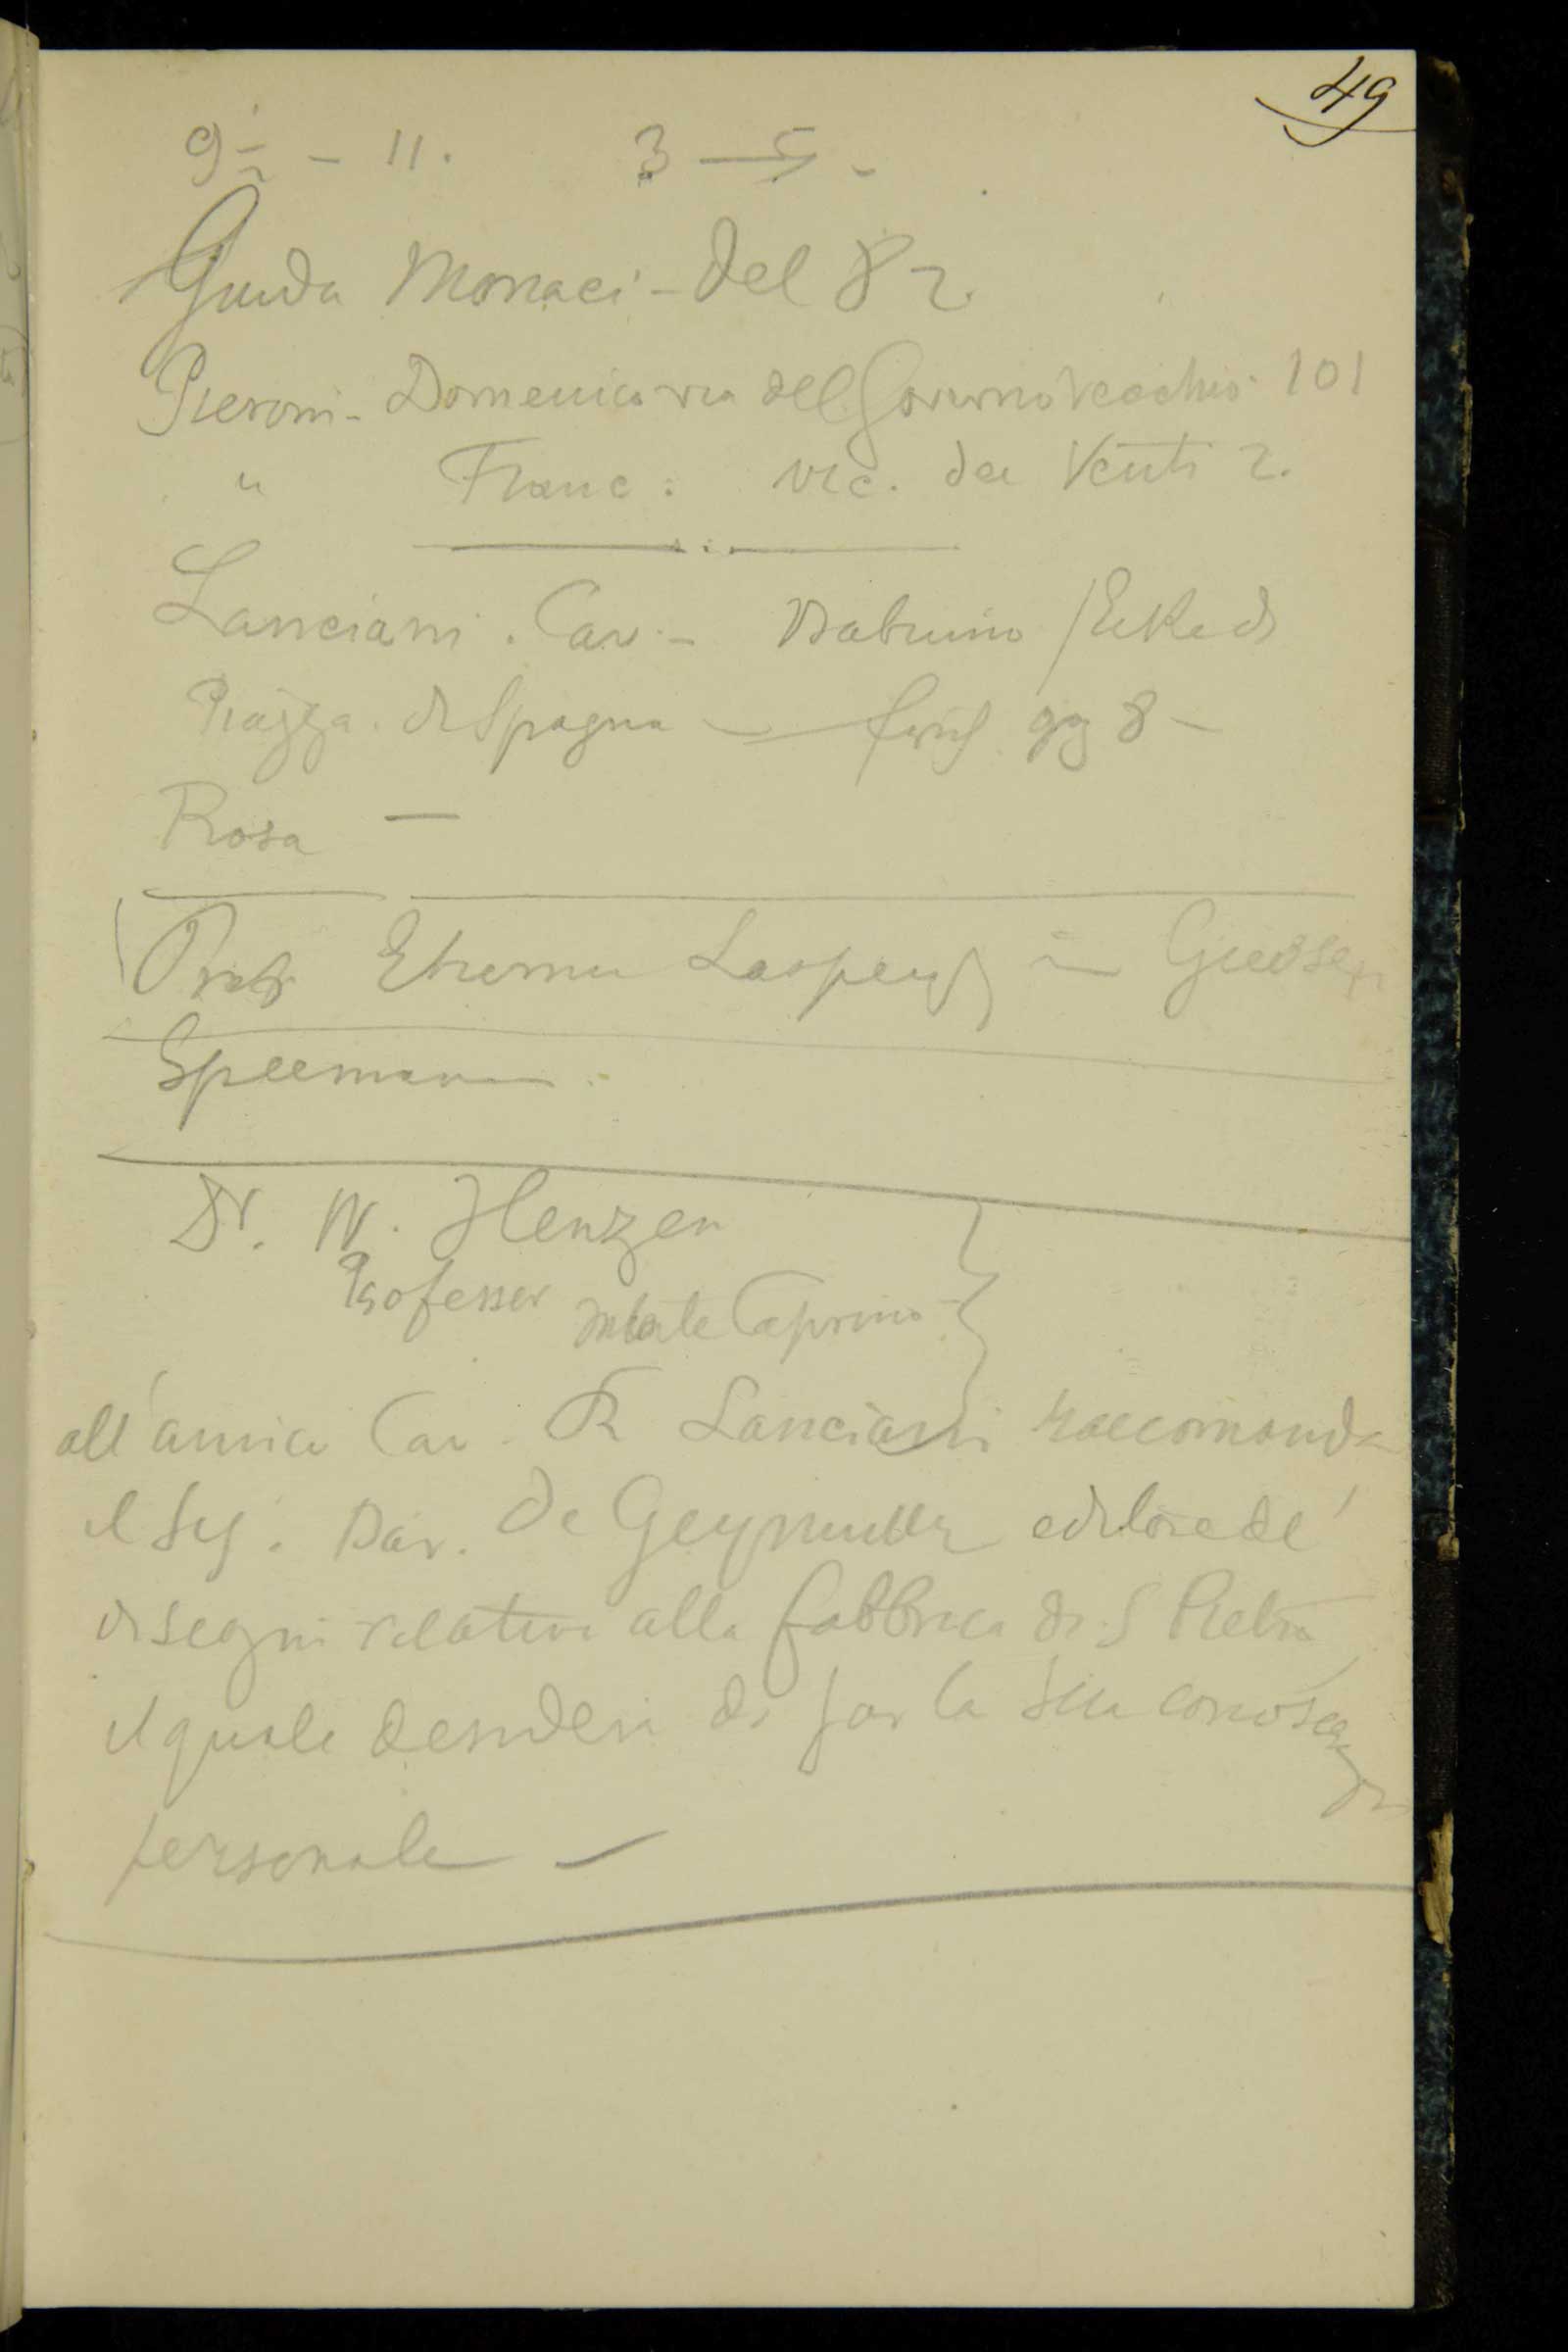 49
9½ – 11. 3 – 5 –
Guida Monaci – del 82
Pieroni – Domenico via del Governo Vecchio 101
" Franc: vic. dei Venti 2.
Lanciani. Cav – Babuino / Ecke d
Piazza di Spagna – früh 8 –
Rosa –
Prof Etienne Laspeyres in Giessen
Speemann
Dr. W. Henzen
Professor Monte Caprino
all'amico Cav. R Lanciani raccomanda
il Sig. Bar. de Geymuller editore de'
disegni relativi alla fabbrica di S Pietro
il quale desidera di far la sua conoscenza
personale –